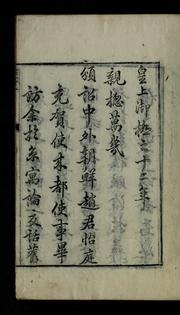 皇上御極之十三年
親揔萬幾
頒詔中外朝鮮趙君怡庭
充賀使來都使事畢
訪余於京寓論交話舊